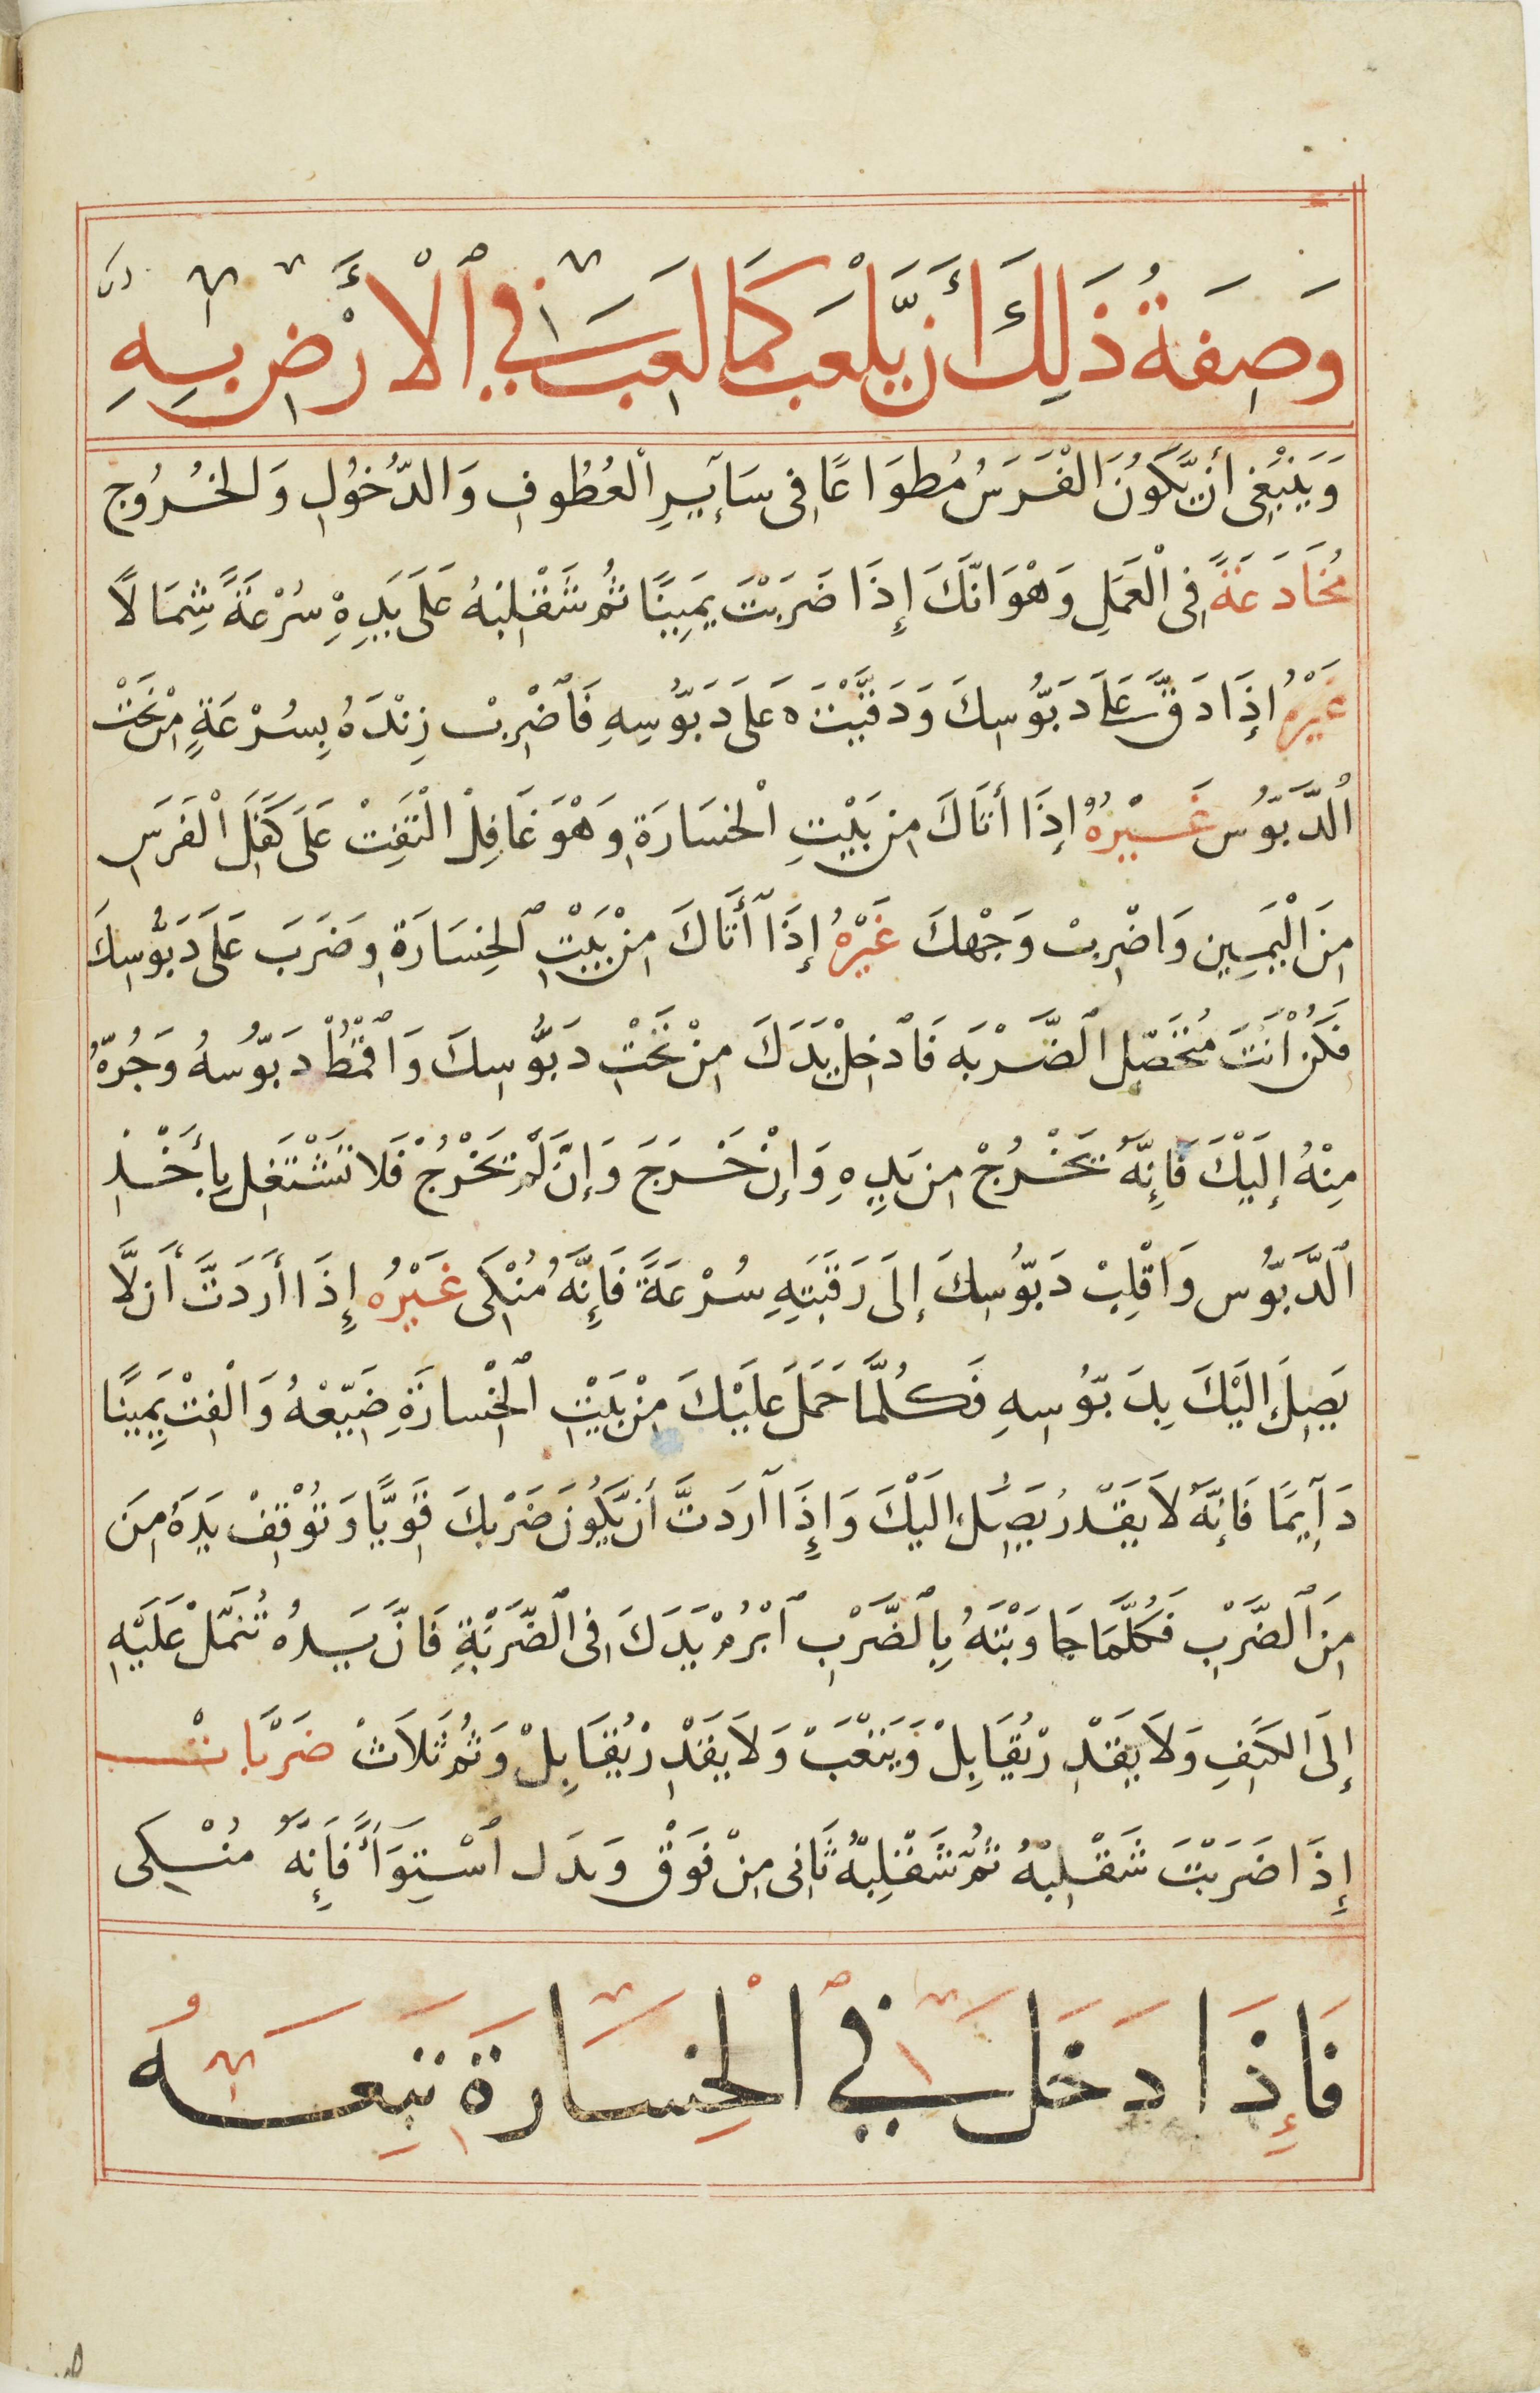 وَصِفَةُ ذَلِكَ أَن يَّلْعَبَ كَمَا لَعِبَ فِي ٱلْأَرْضِ بِهِ
وَيَنْبَغِى أَن يَّكُونَ الْفَرَسُ مُطوَاعًا فِى سَآيِرِ الْعُطُوفِ وَالدُّخُولِ وَالخُرُوجِ
مُخَادَعَةً فِى الْعَمَلِ وَهْوَ انَّكَ إِذَا ضَرَبْتَ يَمِينًا ثُم شَقْلِبْهُ عَلَى يَدِهِ سُرْعَةً شِمَالًا
غَيْرُهُ إِذَا دَقَّ عَلَى دَبُّوسِكَ وَدَقَّيْتَه عَلَى دَبُّوسِهِ فَاَضْرِبْ زِنْدَهُ بِسُرْعَةٍ مِنْ تَحْتْ
الْدَّبُّوس غَيْرُهُ إِذَا أَتَاكَ مِن بَيْتِ الْخسَارَةِ وَهْوَ غَافِلْ الْتَفِتْ عَلَى كَفَلِ الْفَرَسِ
مِنَ الْيَمِين وَاضْرِبْ وَجْهكَ غَيْرُهُ إِذَا أَتَاكَ مِنْ بَيْتِ ٱلْخِسَارَةِ وَضَرَبَ عَلَى دَبُّوسِكَ
فَكُنْ أَنْتَ مُتَحَصِّل ٱلضَّرْبَه فَادْخِلْ يَدَكَ مِنْ تَحْتِ دَبُّوسِكَ وَاقْمُطْ دَبُّوسهُ وَجُرّهُ
مِنْهُ إِلَيْكَ فَإِنَّهُ يَخْرُجْ مِن يَدِهِ وَإِنْ خَرَجَ وَإِنْ لَمْ يَخْرُجْ فَلا تَشْتَغِل بِأَخْذِ
ٱلدَّبُّوس وَاقْلِبْ دَبُّوسكَ إِلَى رَقَبَتِهِ سُرْعَةً فَإِنَّهُ مُنْكَى غَيْرُه إِذَا أَرَدَتَّ أَن لَّا
يَصِلَ إِلَيْكَ بِدَبُّوسِهِ فَكُلَّمَا حَمَلَ عَلَيْكَ مِنْ بَيْتِ ٱلْخْسارَةِ ضَيِّعْهُ وَالْفِتْ يَمِينًا
دَآيِمًا فَإِنَّهُ لَا يَقْدِرُ يَصِلُ إِلَيْكَ وَإِذَا اَرَدَتَّ أَن يَّكُونَ ضَرْبكَ قَوِيًّا وَتُوْقِفْ يَدَهُ مِنَ
مِنَ ٱلضَّرْبِ فَكُلَّمَا جَاوَبْتَهُ بِالضَّرْبِ ٱبْرُمْ يَدَكَ فِى ٱلضَّرْبَةِ فَانَّ يَدهُ تُنَمَّلْ عَلَيْهِ
إِلَى الكَتِفِ وَلَا يَقْدِرْ يُقَابِلْ وَيَتْعَبْ وَلَا يَقْدِرْ يُقَابِلْ وَثُم ثَلَاثْ ضَرْبَاتْ
إِذَا ضَرَبْتَ شَقْلِبْهُ ثُمَّ شَقْلِبْهُ ثَانِى مِنْ فَوْق وَبَدَل ٱسْتِوَأً فَإِنَّهُ مُنْكِى
فَإِذَا دَخَلَ فِي ٱلْخِسَارَةِ تَبِعَهُ